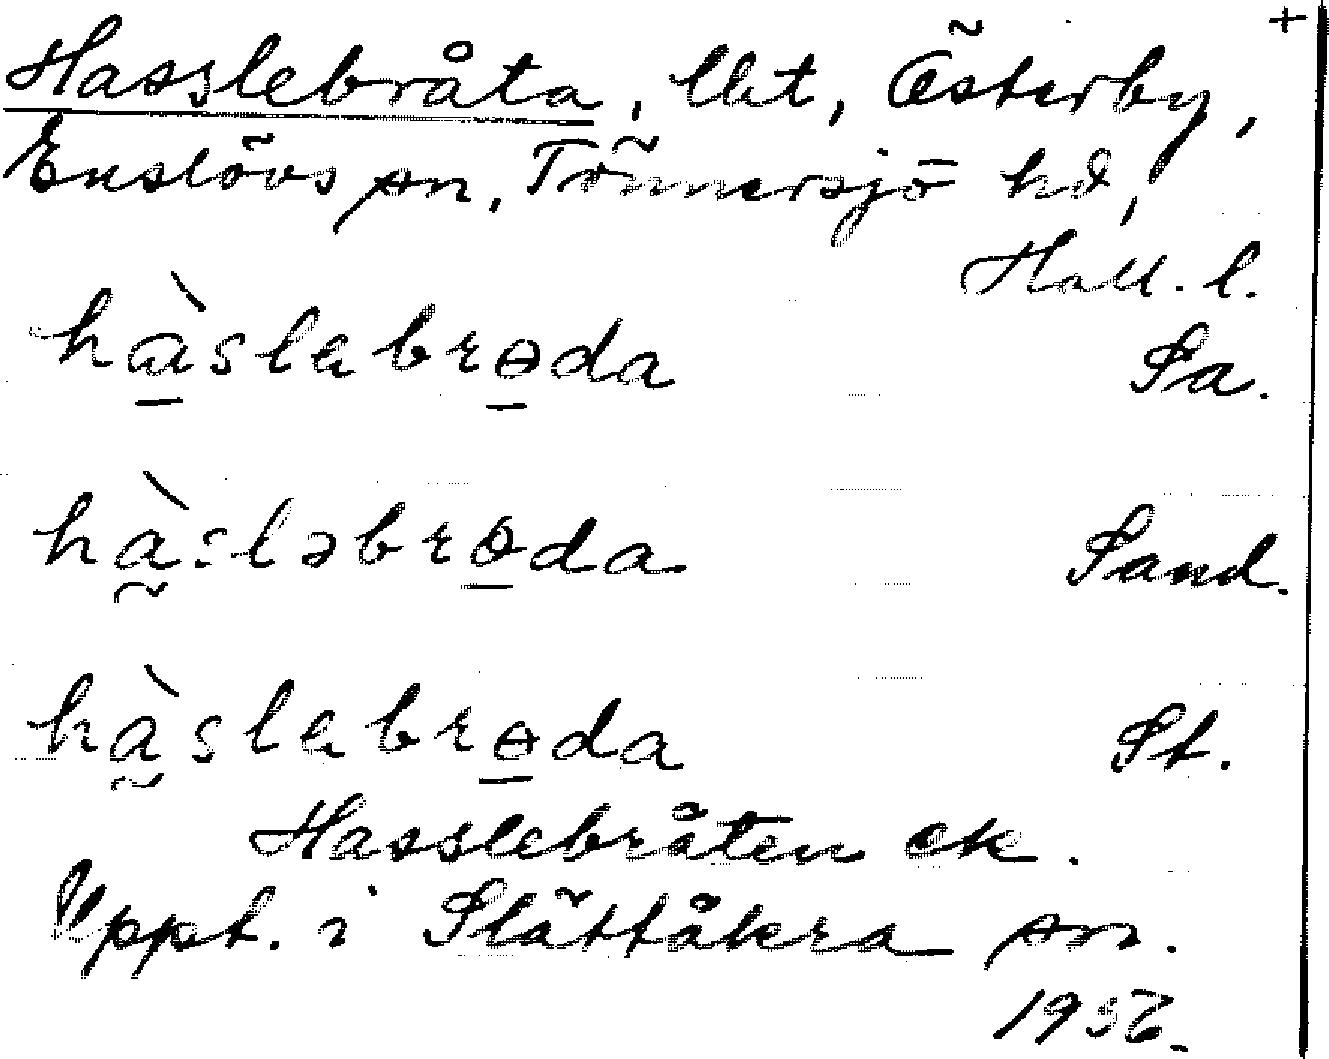 +
Hasslebråta, lht, Österby,
Enslövs sn, Tönnersjö hd,
Hall. l.
hàslebrɵda Sa.
hàsləbrɵda Sand.
hàslebrɵda St.
Hasslebråten ek.
Uppt. i Slättåkra sn.
1936.